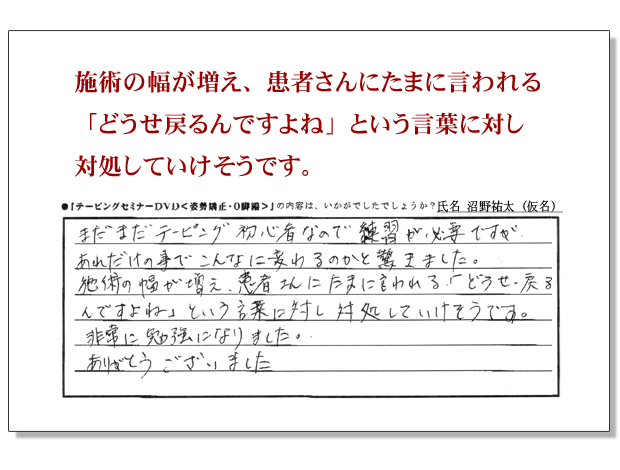 施術の幅が増え、患者さんにたまに言われる
「どうせ戻るんですよね」という言葉に対し
対処していけそうです。
●『テーピングセミナーDVD<姿勢矯正・O脚編>』の内容は、いかがでしたでしょうか？氏名 沼野祐太（仮名）
まだまだテーピング初心者なので練習が必要ですが
あれだけの事でこんなに変わるのかと驚きました。
施術の幅が増え、患者さんにたまに言われる「どうせ戻る
んですよね」という言葉に対し対処していけそうです。
非常に勉強になりました。
ありがとうございました